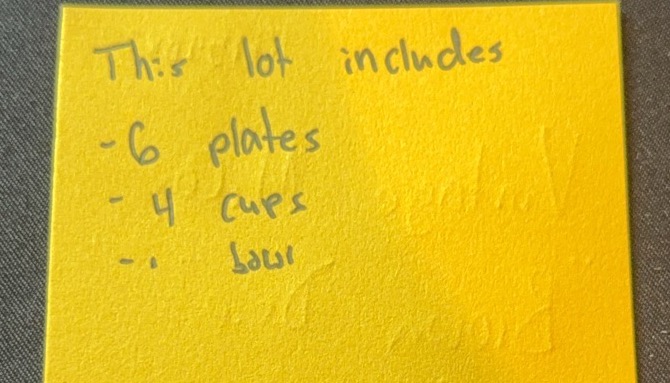 This lot includes
- 6 plates
- 4 cups
- bowl